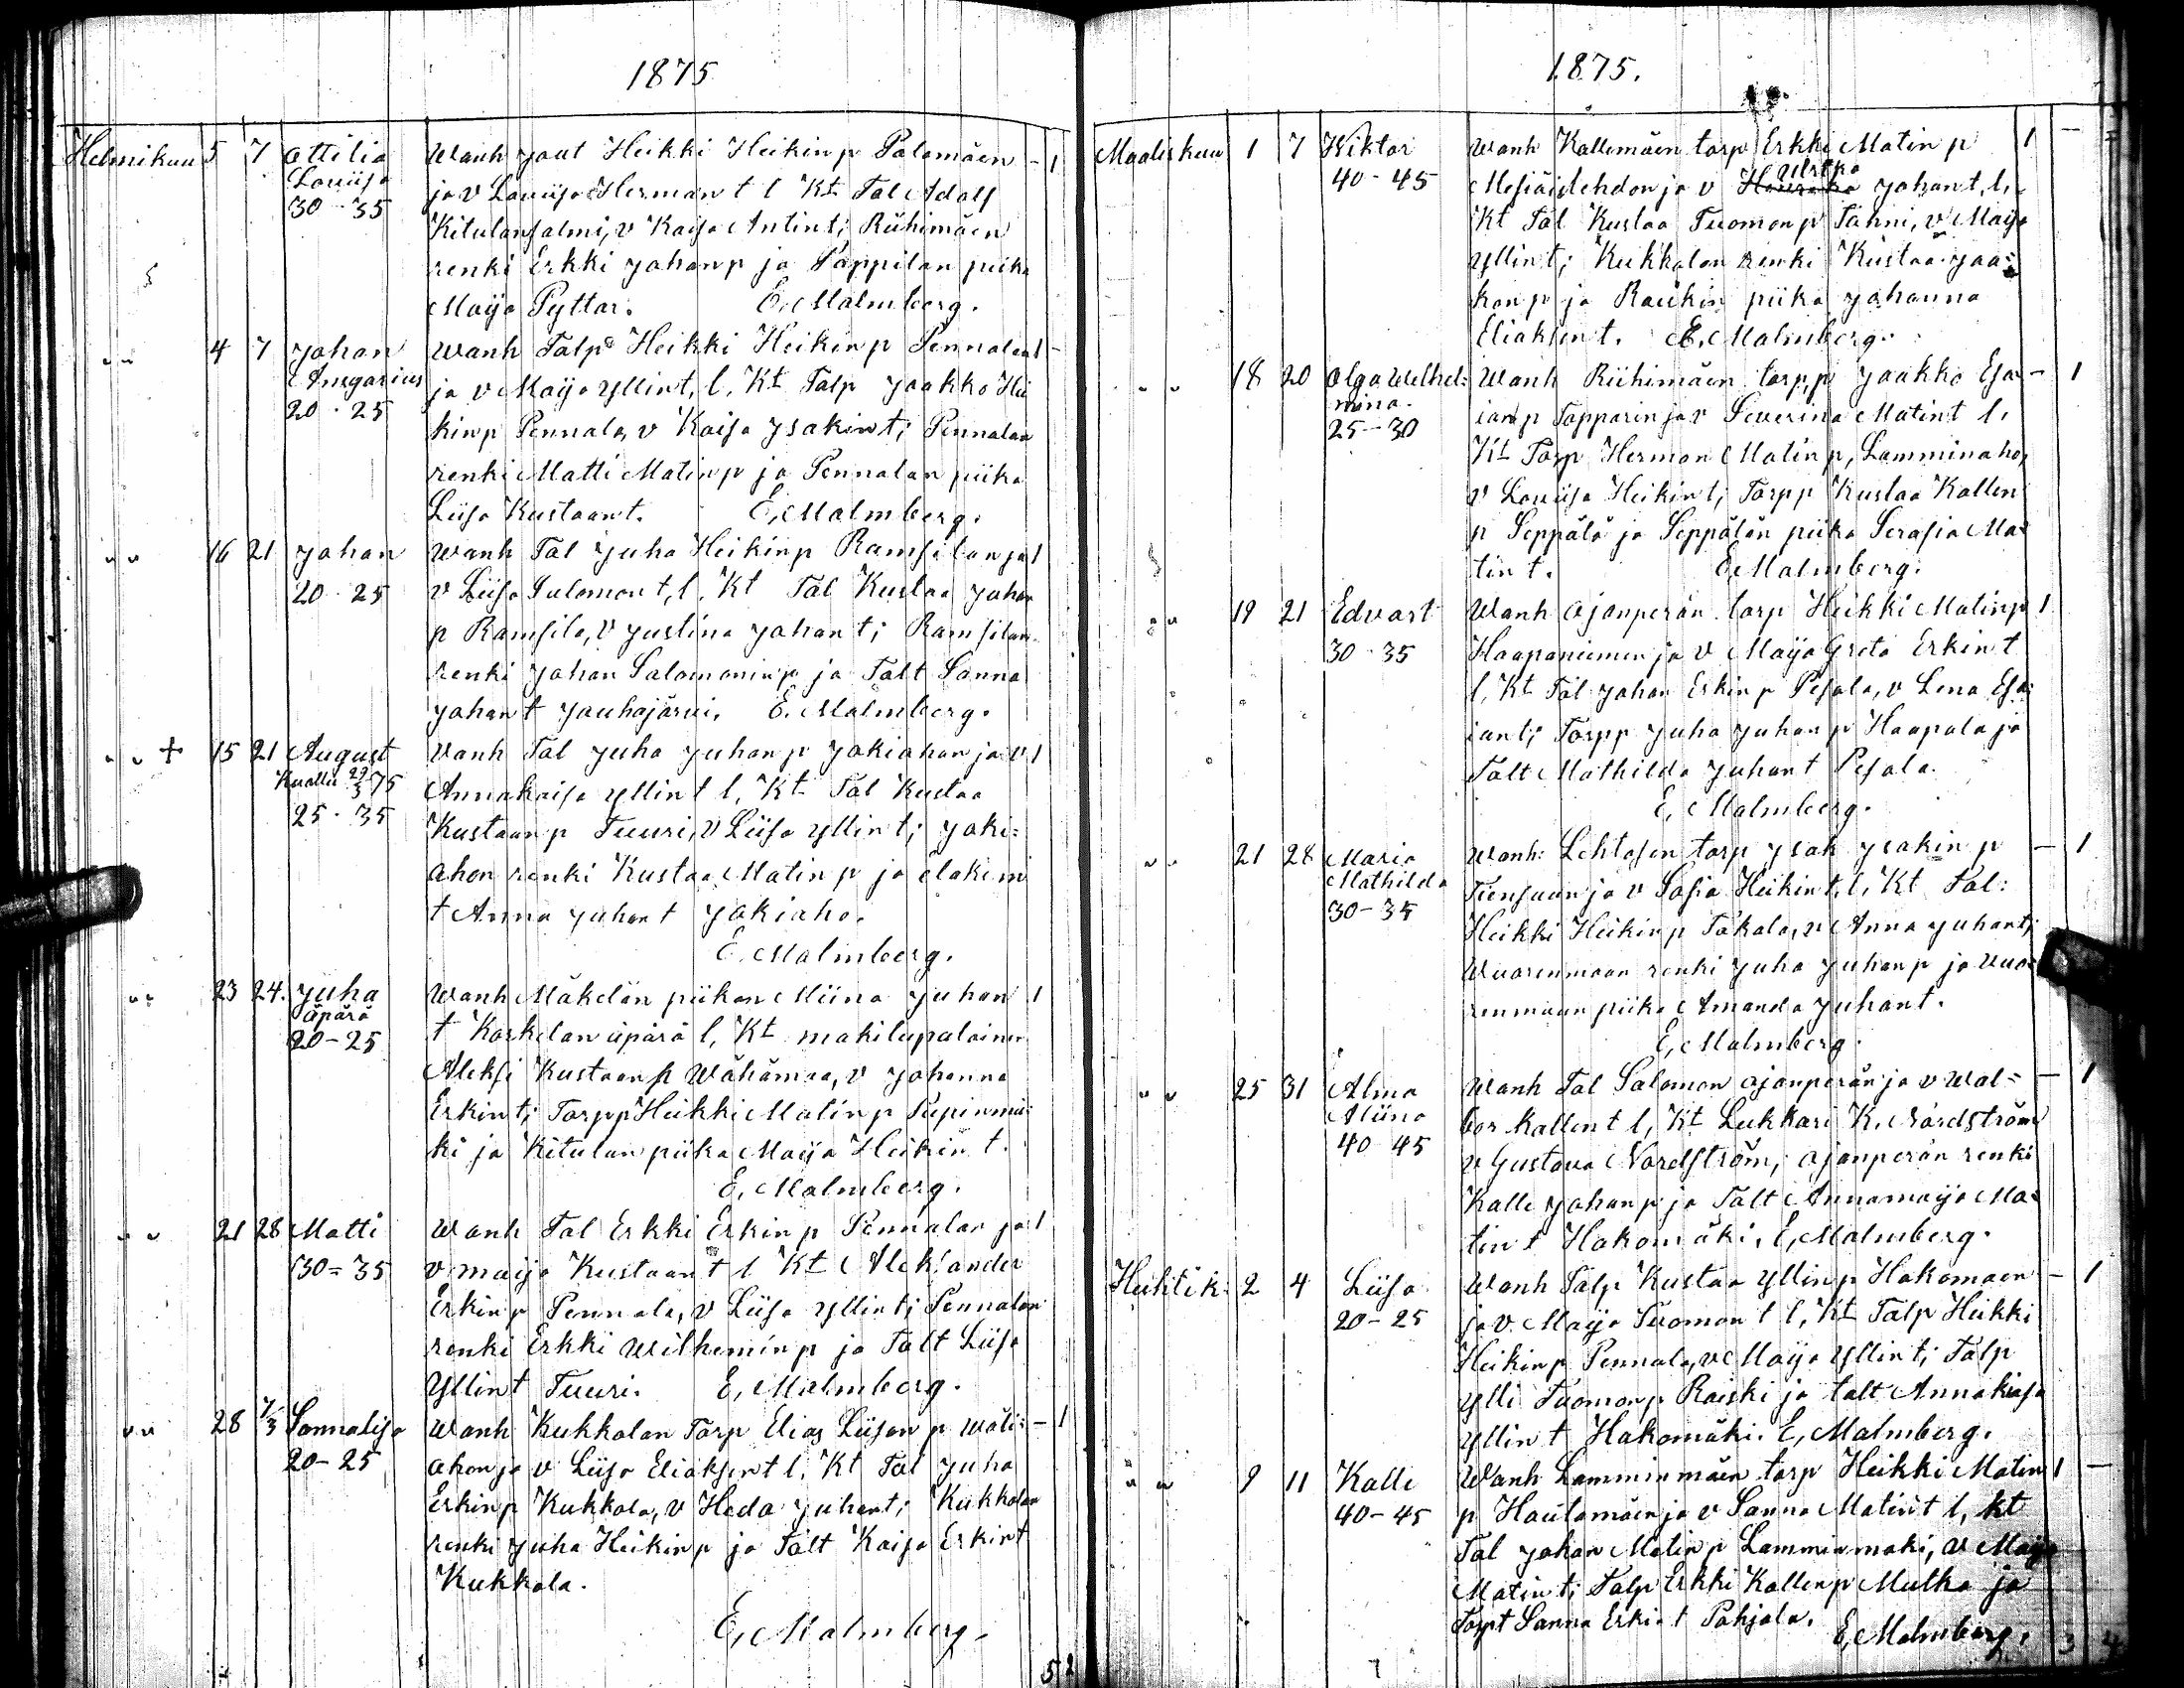 1875
Helmikuu 5 7 Ottilia Wanh yaut Heikki Heikinp Palomäen - 1
Louiisa ja v Louiisa Hermant l Kt Tal Adolf
30-35 Kitulansalmi, v Kaisa Antint; Riihimäen
renki Erkki Johanp ja Pappilan piika
Maija Pyttar. E. Malmberg.
" " 4 7 Johan Wanh Talp Heikki Heikinp Pennalan 1 -
Ansgarius ja v Maija Yllint, l, Kt Talp Jaakko Hei
20.25 kinp Pennala, v Kaisa Isakint; Pennalan
renki Matti Matinp ja Pennalan piika
Liisa Kustaant. E, Malmberg.
" " 16 21 Johan Wanh Tal Juha Heikinp Ramsilan ja 1
20.25 v Liisa Salomont, l. Kt Tal Kustaa Johan
p Ramsila, v Justina Johant; Ramsilan
renki Johan Salomoninp ja Talt Sanna
Johant Jouhojärvi. E. Malmberg.
" " + 15 21 August Vanh Tal Juha Juhanp Jokiahon ja v 1
Kuollu 29/3 75 Annakaisa Yllint l, Kt Tal Kustaa
25.35 Kustaanp Tuuri, v Liisa Yllint; Joki=
ahon renki Kustaa Matinp ja
t Anna Juhant Jokiaho.
E. Malmberg.
" " 23 24. Juha Wanh Mäkelän piikan Miina Juhan 1
äpärä t Koskelan äpärä l, Kt mäkitupalainen
20-25 Aleksi Kustaanp Wähämaa, v Johanna
Erkint; Torpp Heikki Matinp
ki ja Kitulan piika Maija Heikint.
E, Malmberg.
" " 21 28 Matti Wanh Tal Erkki Erkinp Pennalan ja 1
30=35 v maija Kustaant l Kt Aleksander
Erkinp Pennala, v Liisa Yllint; Pennalan
renki Erkki Wilheminp ja Talt Liisa
Yllint Tuuri. E, Malmberg.
" " 28 1/3 Sannaliisa Wanh Kukkolan Torp Elias Liisanp Wäli= - 1
20-25 ahon ja v Liisa Eliaksent l. Kt Tal Juha
Erkinp Kukkola, v Heda Juhant; Kukkolan
renki Juha Heikinp ja Talt Kaisa Erkint
Kukkola.
E, Malmberg.
5 2
1875.
Maaliskuu 1 7 Wiktor Wanh Kallomäen torp Erkki Matinp 1 -
Ulrika
40-45 Mesiäislehdon ja v Johant, l,
Kt Tal Kustaa Tuomonp Tanni, v Maija
Yllint; Kukkolan renki Kustaa Jaa=
konp ja Raukin piika Johanna
Eliaksent. E. Malmberg.
" " 18 20 Olga Welhel= Wanh Riihimäen torpp Jaakko Esa - 1
mina. ianp Tapparin ja v Severina Matint l,
25-30 Kt Torp Herman Matinp, Lamminaho,
v Louiisa Heikint; Torpp Kustaa Kallen
p Seppälä ja Seppälän piika Serafia Ma=
tint. E, Malmberg.
" " 19 21 Edvart Wanh Ojanperän torp Heikki Matinp 1
30.35 Haapaniemen ja v Maija Greta Erkint
l, Kt Tal Johan Erkinp Pesola, v Lena Esa=
iant; Torpp Juha Juhanp Haapala ja
Talt Mathilda Juhant Pesola.
E, Malmberg.
" " 21 28 Maria Wanh: Lehtosen torp Isak Isakinp - 1
Mathilda Tiensuun ja v Sofia Heikint, l, Kt Tal:
30-35 Heikki Heikinp Takala, v Anna Juhant;
Wuorenmaan renki Juha Juhanp ja Vuo=
renmaan piika Amanda Juhant.
E, Malmberg.
" " 25 31 Alma Wanh Tal Salomon Ojanperän ja v Wal= - 1
Miina bor Kallent l, Kt Lukkari K. Nordström
40 45 v Gustava Nordström; Ojanperän renki
Kalle Johanp ja Talt Annamaija Ma=
tint Hakomäki. E, Malmberg.
Huhtik: 2 4 Liisa Wanh Talp Kustaa Yllinp Hakomäen - 1
20-25 ja v. Maija Tuomont l, Kt Talp Heikki
Heikinp Pennala, v Maija Yllint; Talp
Ylli Tuomonp Raiski ja talt Annakaisa
Yllint Hakomäki. E, Malmberg.
" " 9 11 Kalle Wanh Lamminmäen torp Heikki Matin 1 -
40-45 p Hautamäen ja v Sanna Matint l, kt
Tal Johan Matinp Lamminmäki, v Maija
Matint; Talp Erkki Kallenp Mutka ja
Torpt Sanna Erkint Pohjola. E, Malmberg.
3 4